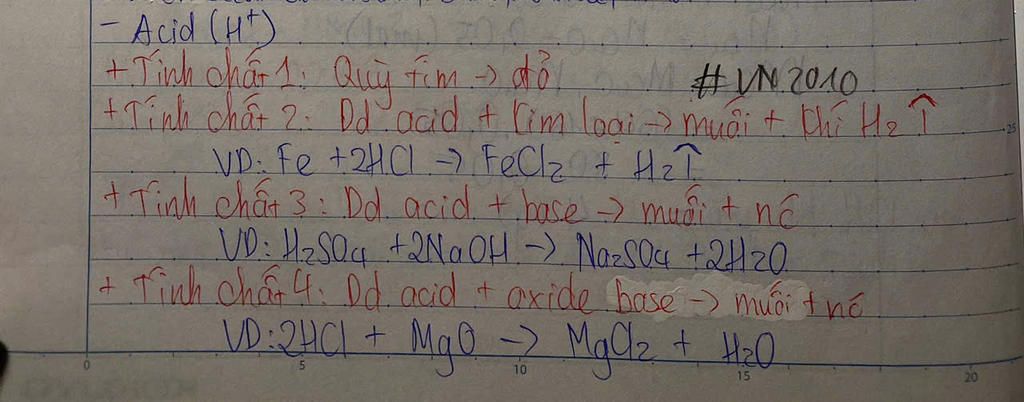 - Acid (H+)
+ Tính chất 1: Quỳ tím → đỏ #VN2010
+ Tính chất 2: Dd acid + kim loại → muối + khí H2↑
VD: Fe + 2HCl → FeCl2 + H2↑
+ Tính chất 3: Dd acid + base → muối + nc
VD: H2SO4 + 2NaOH → Na2SO4 + 2H2O
+ Tính chất 4: Dd acid + oxide base → muối + nc
VD: 2HCl + MgO → MgCl2 + H2O
0 5 10 15 20
25